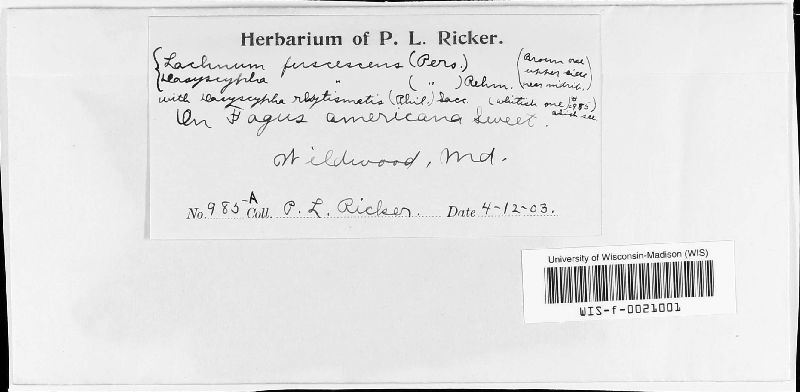 Herbarium of P. L. Ricker.
Lachnum fuscescens (Pers.) (Brown one
Dasyscypha " ( " ) Rehm. upper side
near midrib.)
with Dasyscypha rhytismatis (Phil.) Sacc. (whitish one) (985)
which see
On Fagus americana Sweet.
Wildwood, Md.
No. 985-A Coll. P. L. Ricker. Date 4-12-03.
University of Wisconsin-Madison (WIS)
WIS-f-0021001